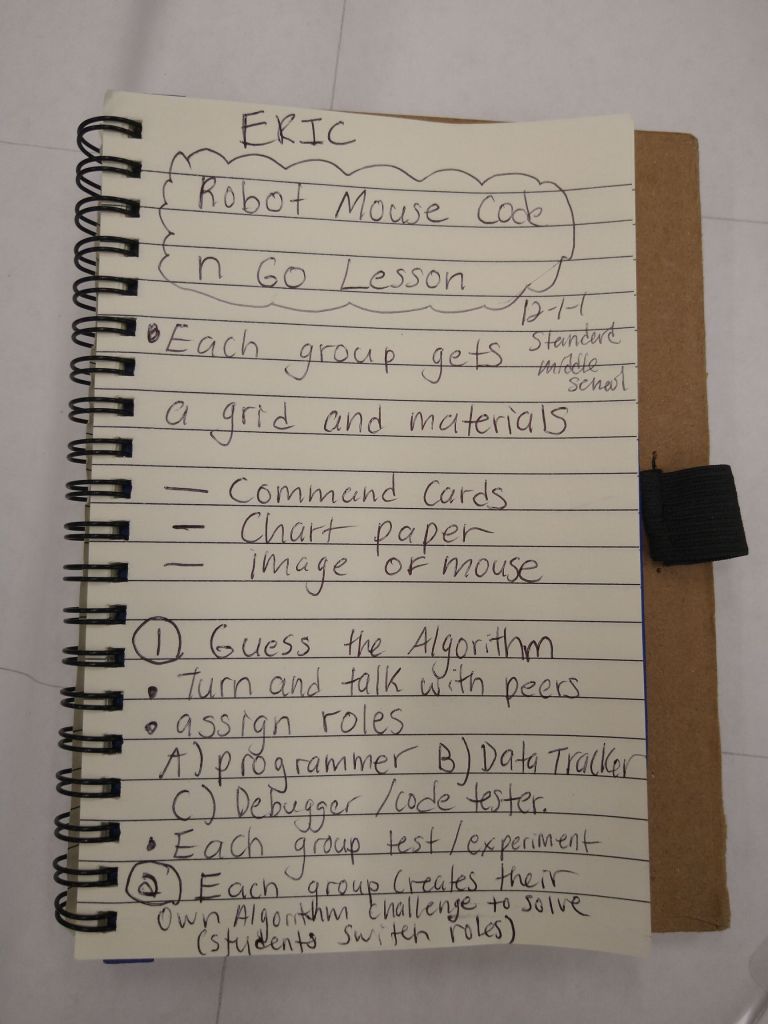 ERIC
Robot Mouse Code
n Go Lesson
12-1-1
Standard
middle
school
• Each group gets
a grid and materials
— Command Cards
— Chart paper
— image of mouse
① Guess the Algorithm
• Turn and talk with peers
• assign roles
A) programmer B) Data Tracker
C) Debugger / code tester.
• Each group test / experiment
② Each group creates their
own Algorithm challenge to solve
(students switch roles)